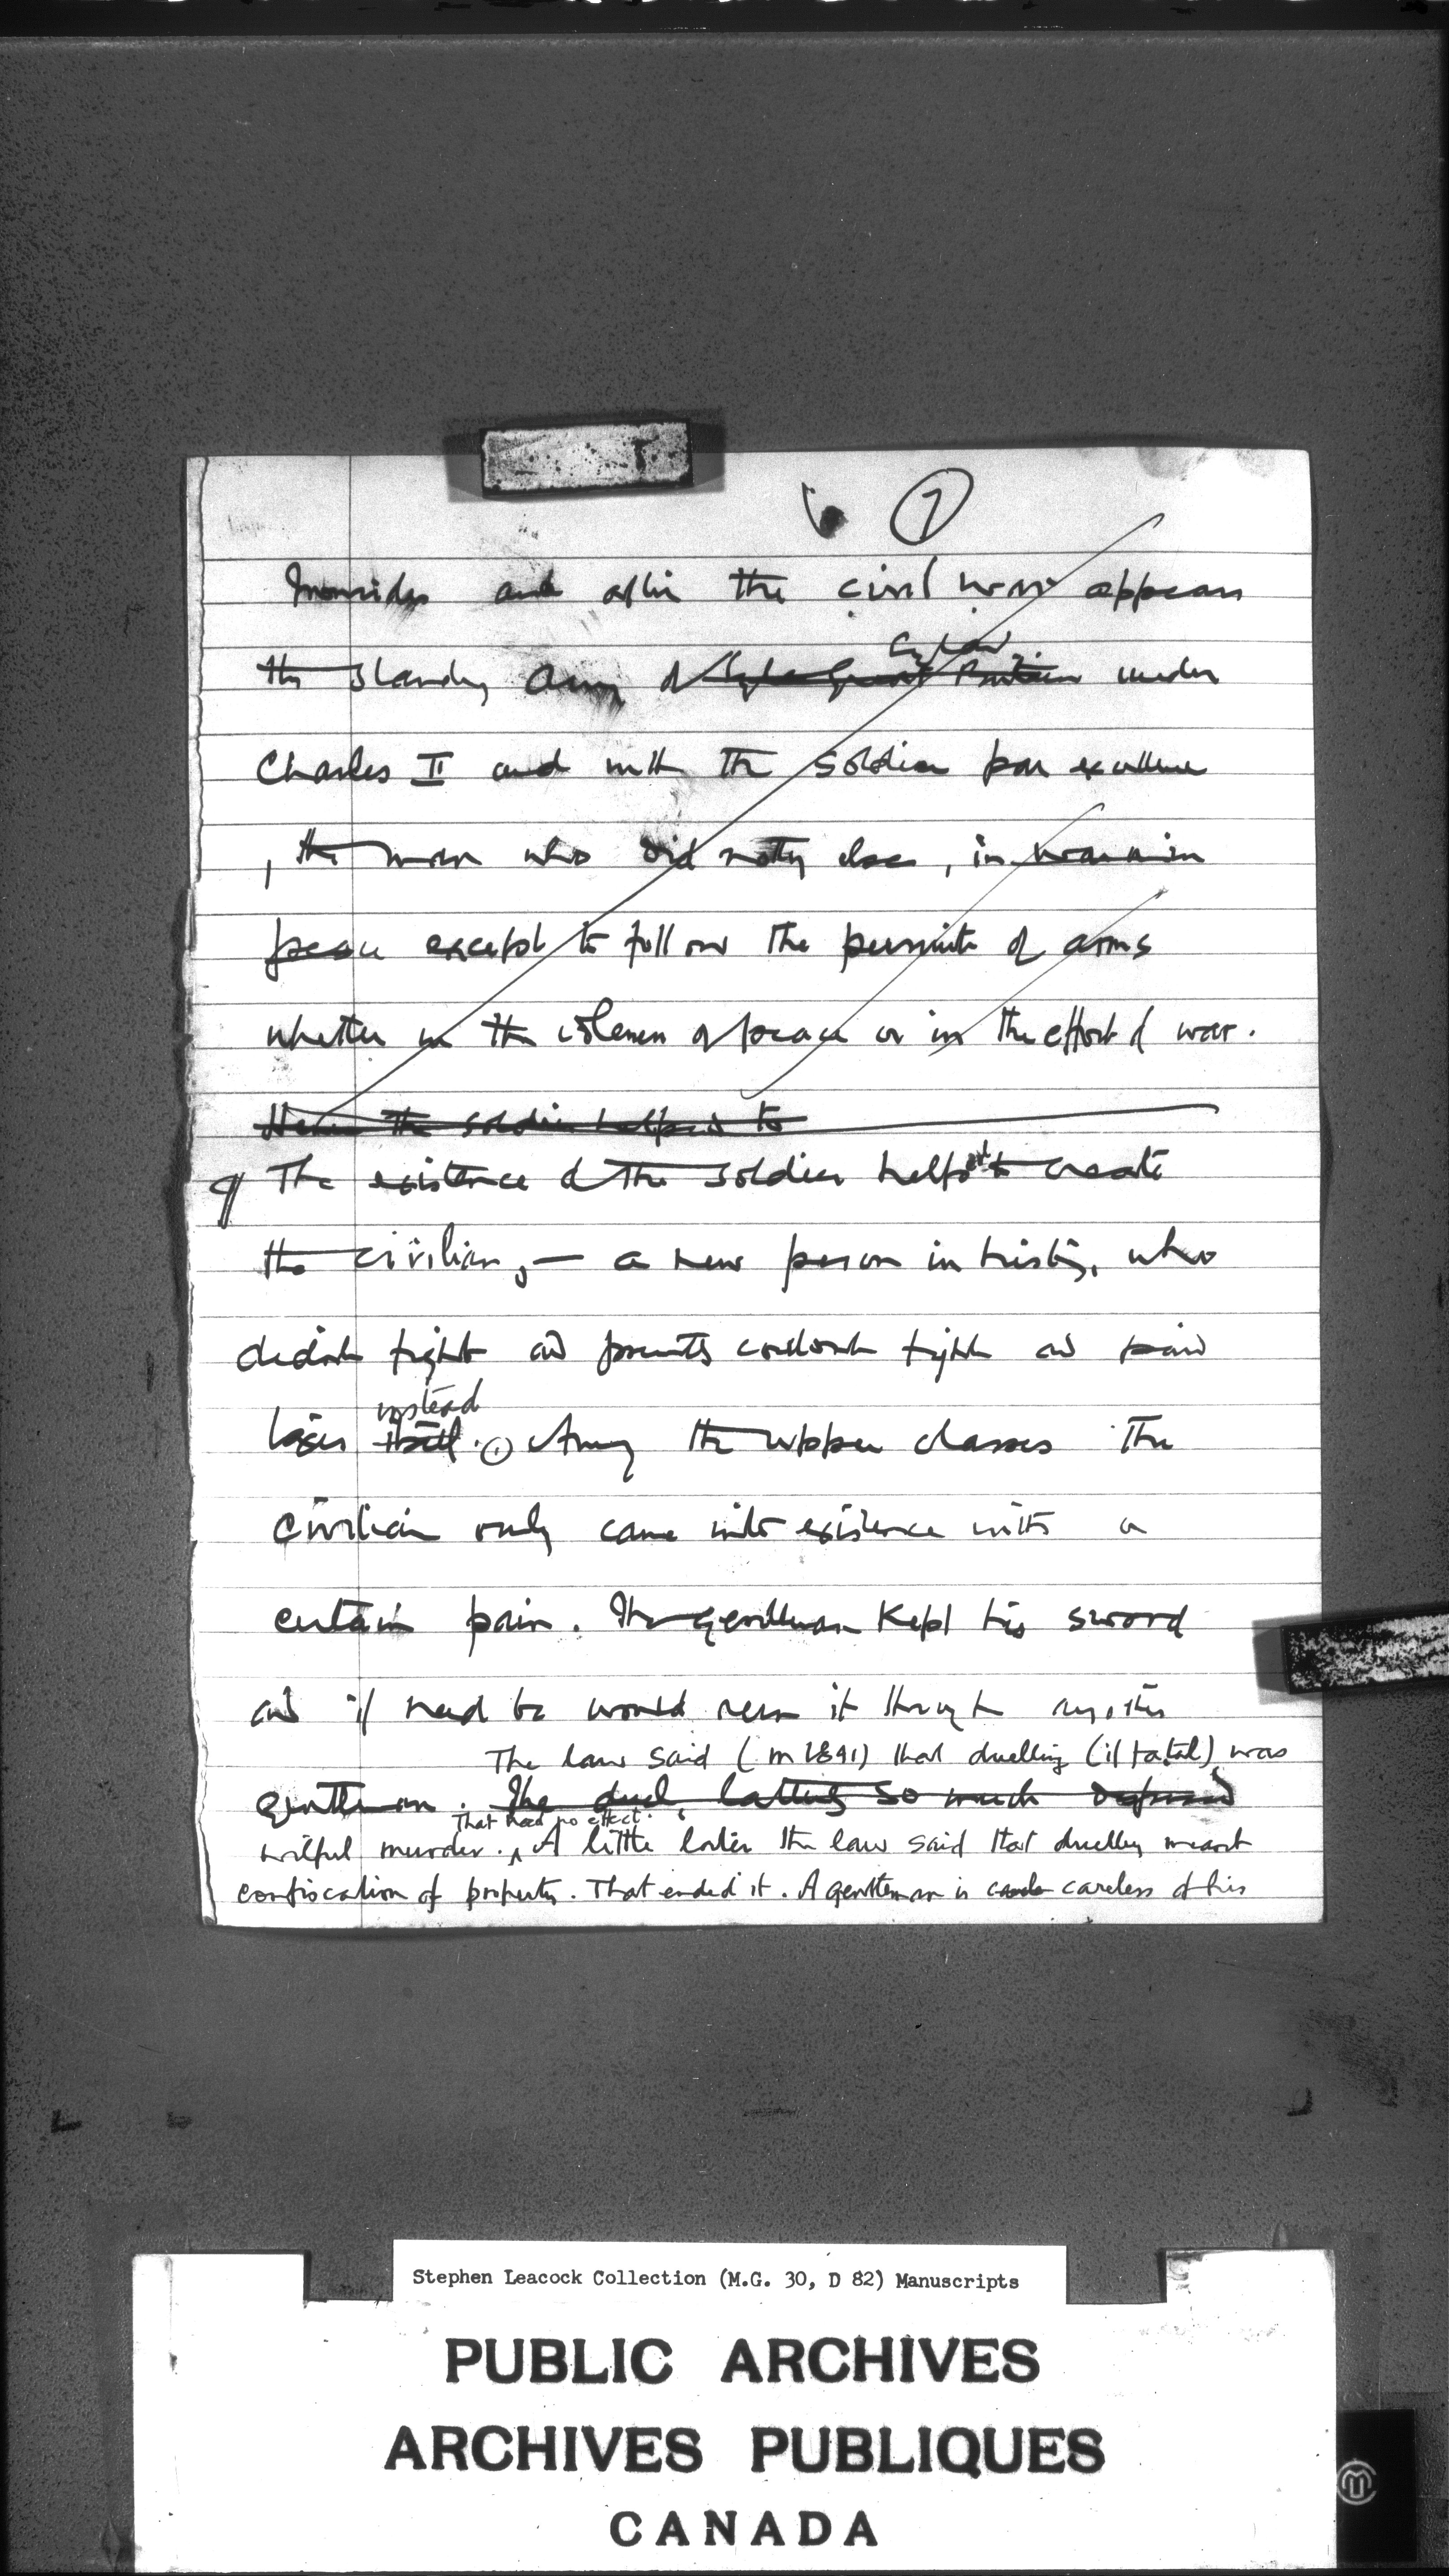 6 7
Ironsides and after the civil war appears
England
the standing army of Great Britain under
Charles II and with the soldier par excellence
, the man who did nothing else, in war or in
peace except to follow the pursuits of arms
whether in the idleness of peace or in the effort of war.
Hence the soldier helped to
¶ The existence of the soldier helped to create
the civilian, — a new person in history, who
didn't fight and presently couldn't fight and paid
instead
taxes itself. Among the upper classes the
civilian only came into existence with a
certain pain. The gentleman kept his sword
and if need be would run it through another
The law said (in 1841) that duelling (if fatal) was
gentleman. The duel, latterly so much
That had no effect.
wilful murder. A little later the law said that duelling meant
confiscation of property. That ended it. A gentleman is careless of his
Stephen Leacock Collection (M.G. 30, D 82) Manuscripts
PUBLIC ARCHIVES
ARCHIVES PUBLIQUES
CANADA